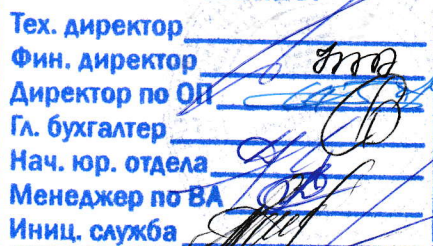 Тех. директор
Фин. директор
Директор по ОП
Гл. бухгалтер
Нач. юр. отдела
Менеджер по ВА
Иниц. служба